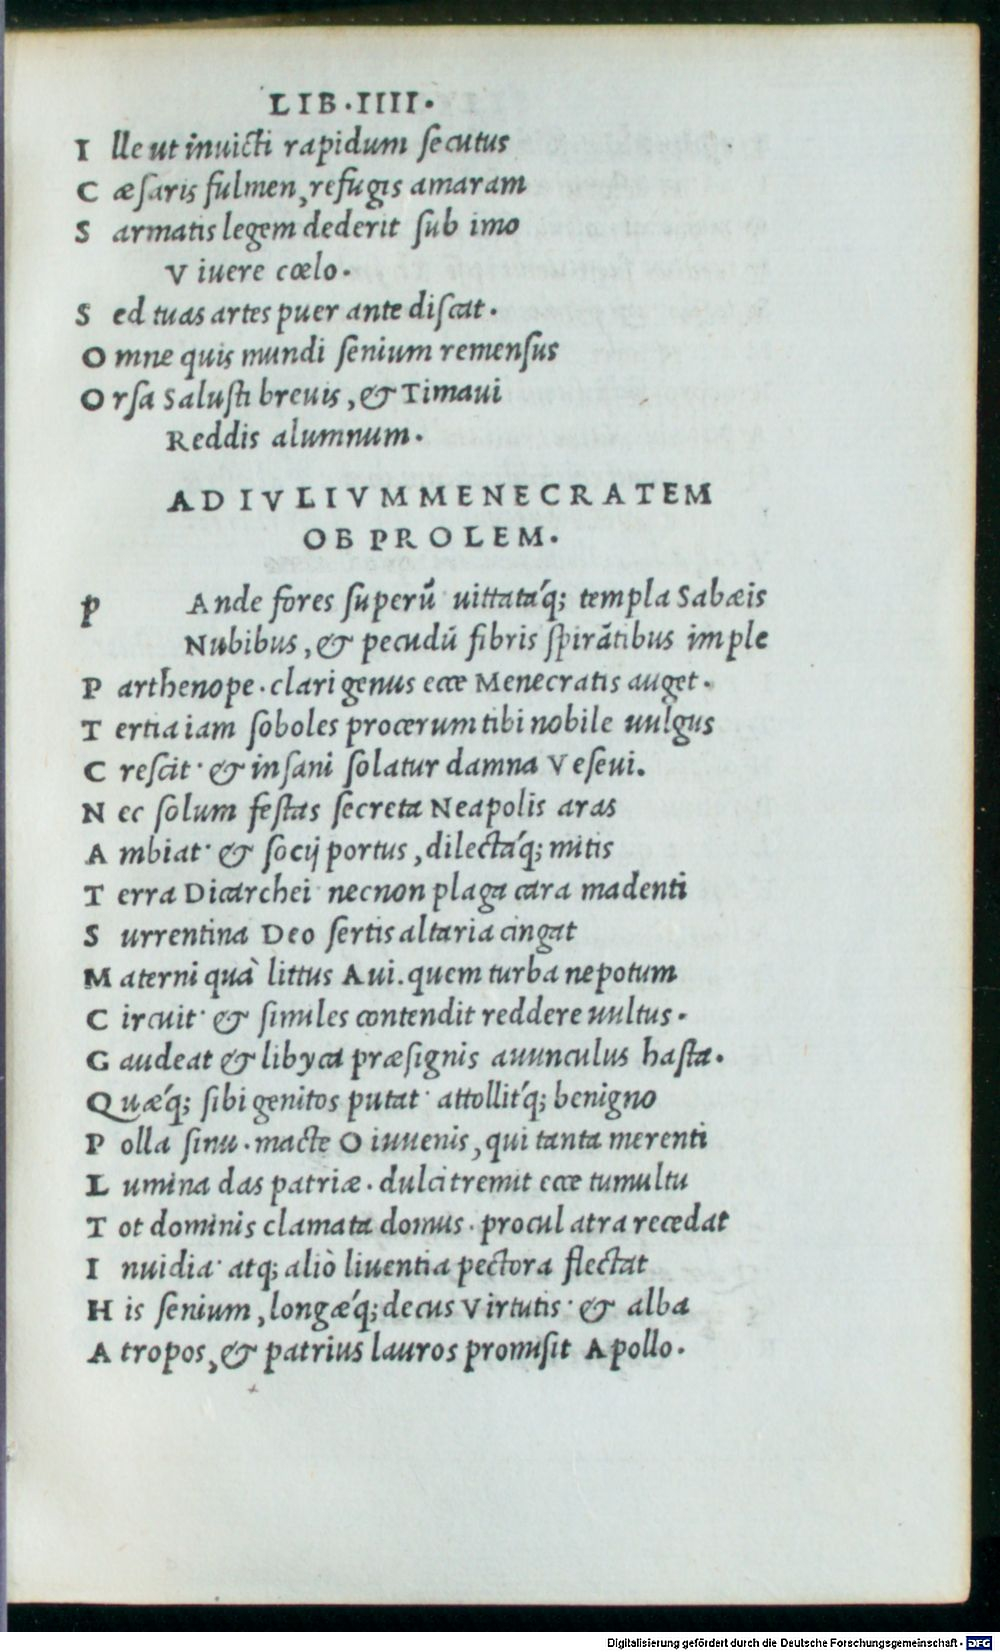 LIB.IIII.
I lle ut inuicti rapidum secutus
C æsaris fulmen, refugis amaram
S armatis legem dederit sub imo
V iuere cœlo.
S ed tuas artes puer ante discat.
O mne quis mundi senium remensus
O rsa Salusti breuis, & Timaui
Reddis alumnum.
AD IVLIVM MENECRATEM
OB PROLEM.
p Ande fores superū uittatáq; templa Sabæis
Nubibus, & pecudū fibris spirātibus imple
P arthenope. clari genus ecce Menecratis auget.
T ertia iam soboles procerum tibi nobile uulgus
C rescit· & insani solatur damna Veseui.
N ec solum festas secreta Neapolis aras
A mbiat· & socij portus, dilectáq; mitis
T erra Dicarchei· necnon plaga cara madenti
S urrentina Deo sertis altaria cingat
M aterni quà littus Aui. quem turba nepotum
C ircuit· & similes contendit reddere uultus.
G audeat & libyca præsignis auunculus hasta.
Q uæ´q; sibi genitos putat· attollit´q; benigno
P olla sinu. macte O iuuenis, qui tanta merenti
L umina das patriæ. dulci tremit ecce tumultu
T ot dominis clamata domus. procul atra recedat
I nuidia· atq; aliò liuentia pectora flectat
H is senium, longæ´q; decus Virtutis· & alba
A tropos, & patrius lauros promisit Apollo.
Digitalisierung gefördert durch die Deutsche Forschungsgemeinschaft - DFG